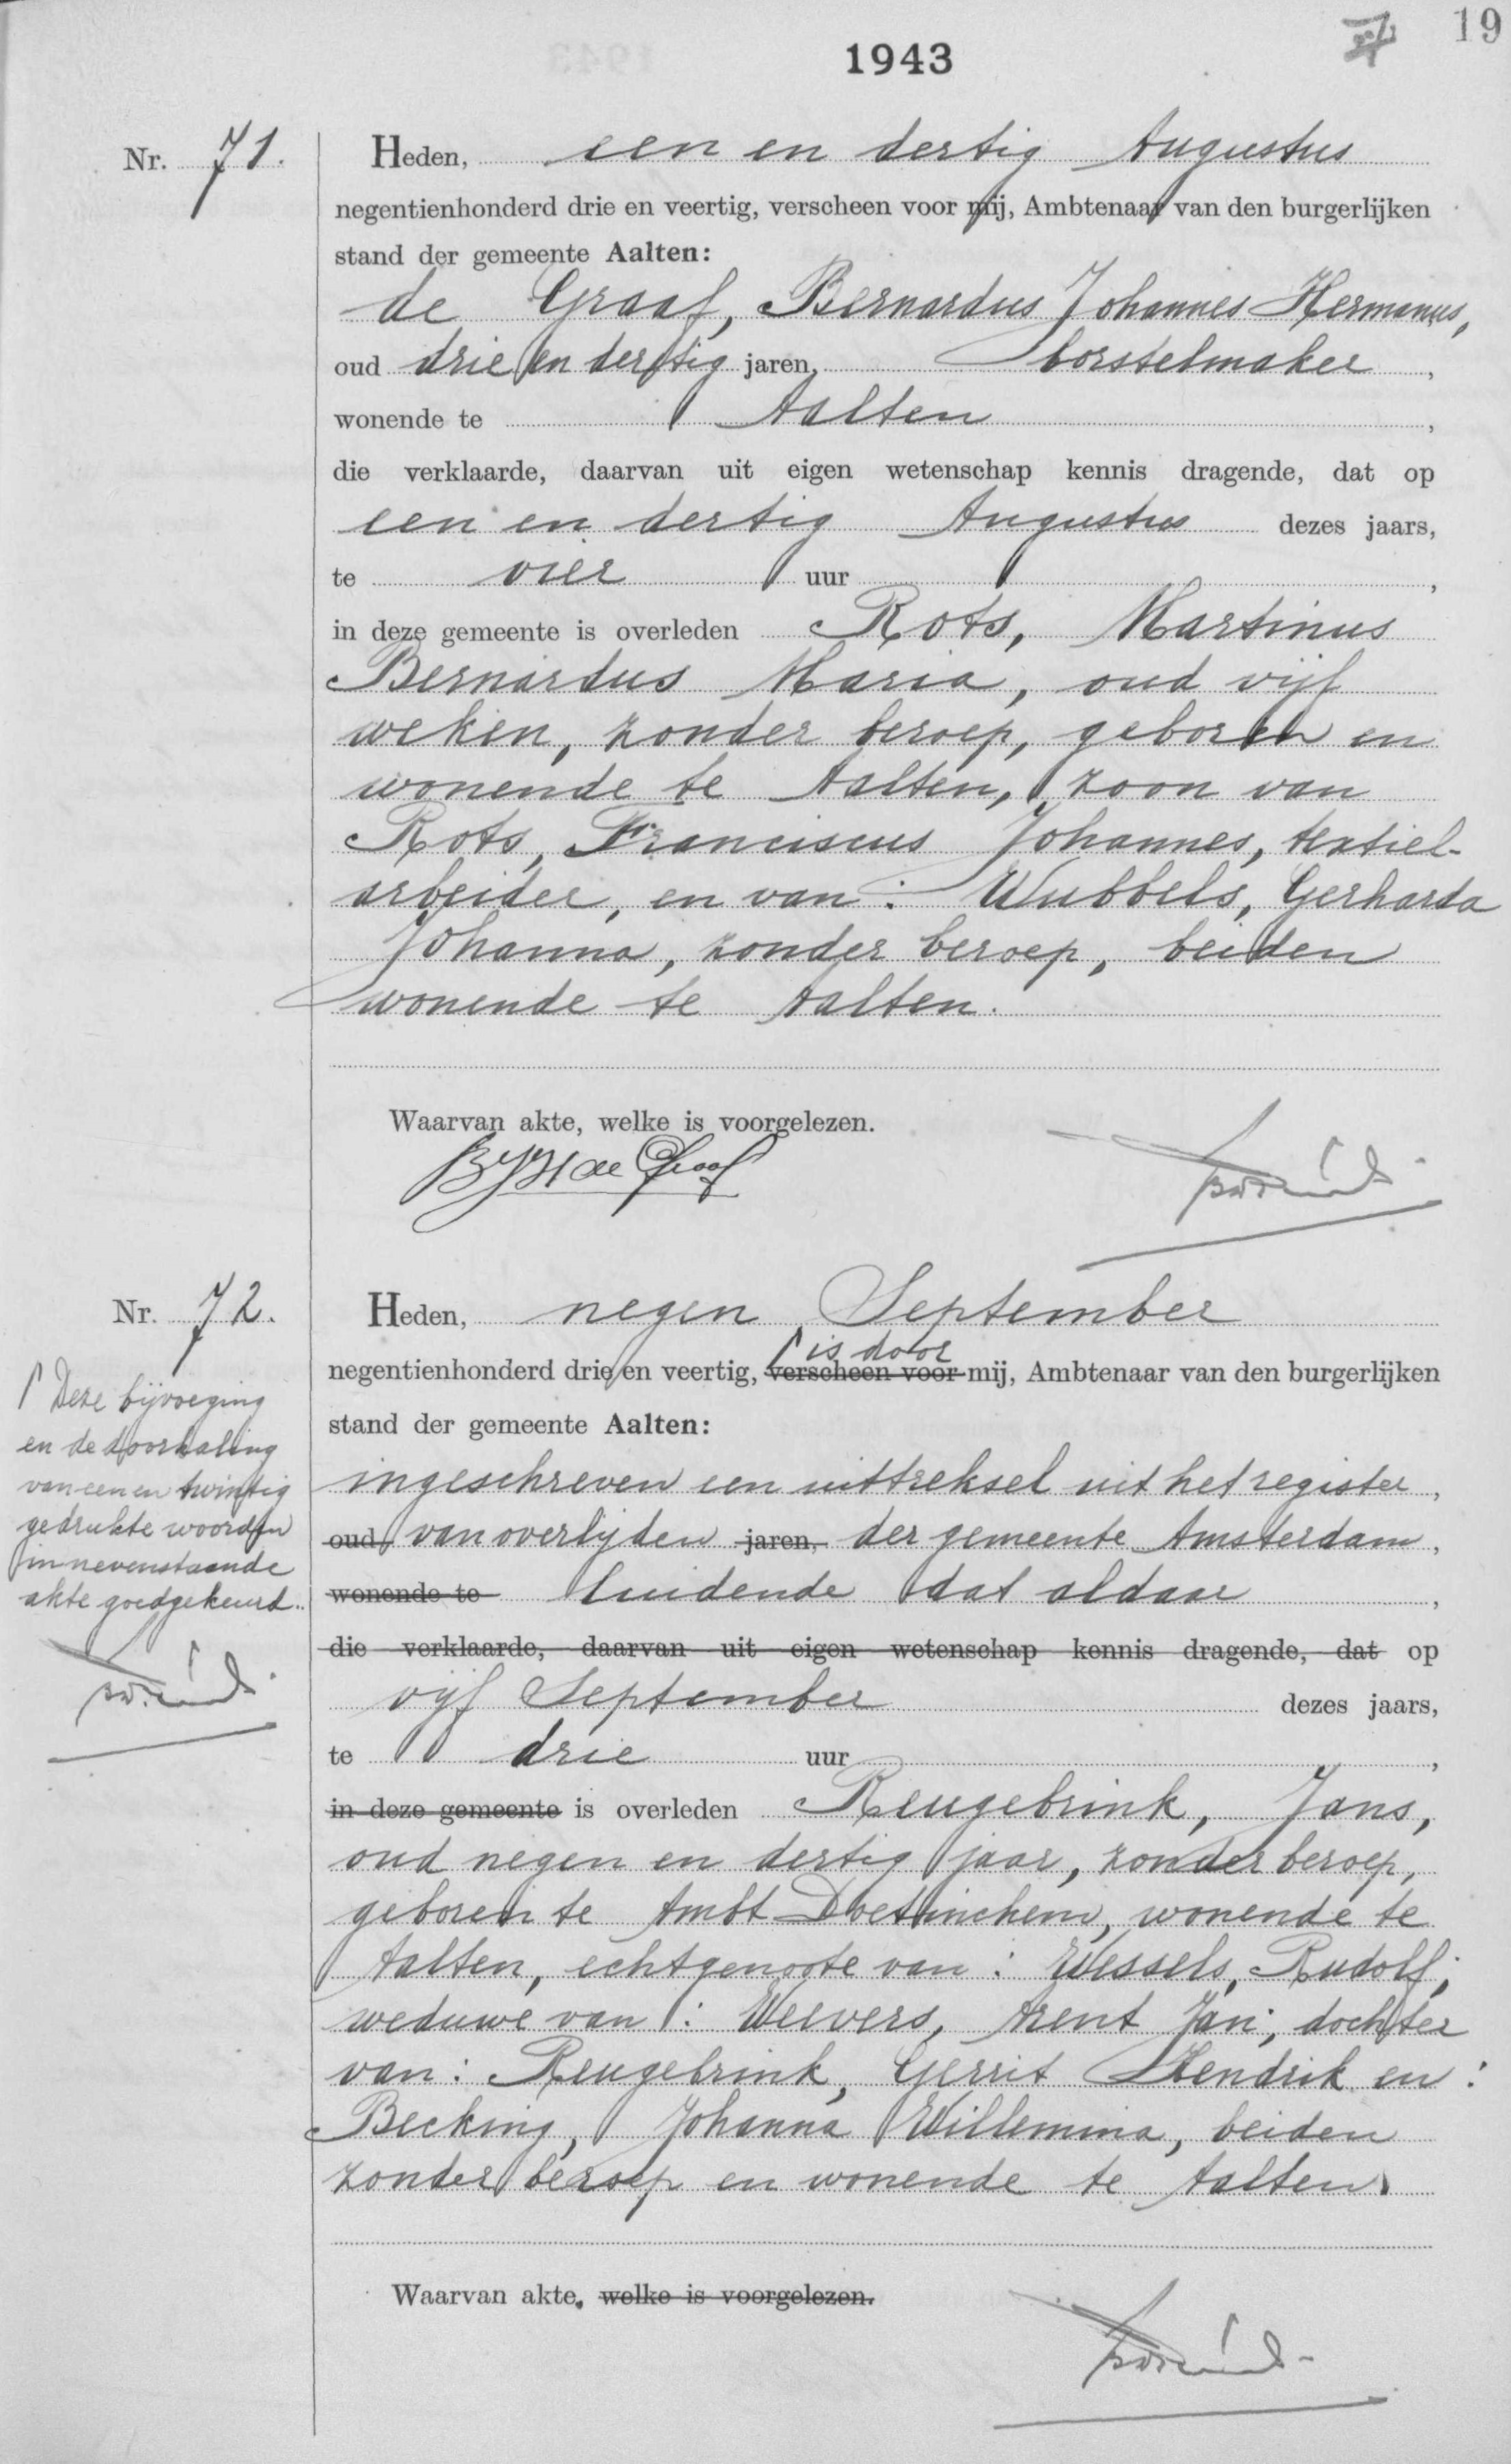 19
1943
Nr. 71.
Heden, een en dertig Augustus
negentienhonderd drie en veertig, verscheen voor mij, Ambtenaar van den burgerlijken
stand der gemeente Aalten:
de Graaf, Bernardus Johannes Hermanus,
oud drie en dertig jaren, borstelmaker,
wonende te Aalten,
die verklaarde, daarvan uit eigen wetenschap kennis dragende, dat op
een en dertig Augustus dezes jaars,
te vier uur,
in deze gemeente is overleden Rots, Martinus
Bernardus Maria, oud vijf
weken, zonder beroep, geboren en
wonende te Aalten, zoon van
Rots, Franciscus Johannes, textiel-
arbeider, en van: Wubbels, Gerharda
Johanna, zonder beroep, beiden
wonende te Aalten.
Waarvan akte, welke is voorgelezen.
BJH de Graaf
Nr. 72.
Heden, negen September
⌈ is door
negentienhonderd drie en veertig, verscheen voor mij, Ambtenaar van den burgerlijken
stand der gemeente Aalten:
ingeschreven een uittreksel uit het register,
oud van overlijden jaren, der gemeente Amsterdam,
wonende te luidende dat aldaar,
die verklaarde, daarvan uit eigen wetenschap kennis dragende, dat op
vijf September dezes jaars,
te drie uur,
in deze gemeente is overleden Reugebrink, Jans,
oud negen en dertig jaar, zonder beroep,
geboren te Ambt-Doetinchem, wonende te
Aalten, echtgenoote van: Wessels, Rudolf;
weduwe van: Weevers, Arent Jan; dochter
van: Reugebrink, Gerrit Hendrik en:
Becking, Johanna Willemina, beiden
zonder beroep en wonende te Aalten.
Waarvan akte. welke is voorgelezen.
⌈ Deze bijvoeging
en de doorhaling
van een en twintig
gedrukte woorden
in nevenstaande
akte goedgekeurd.